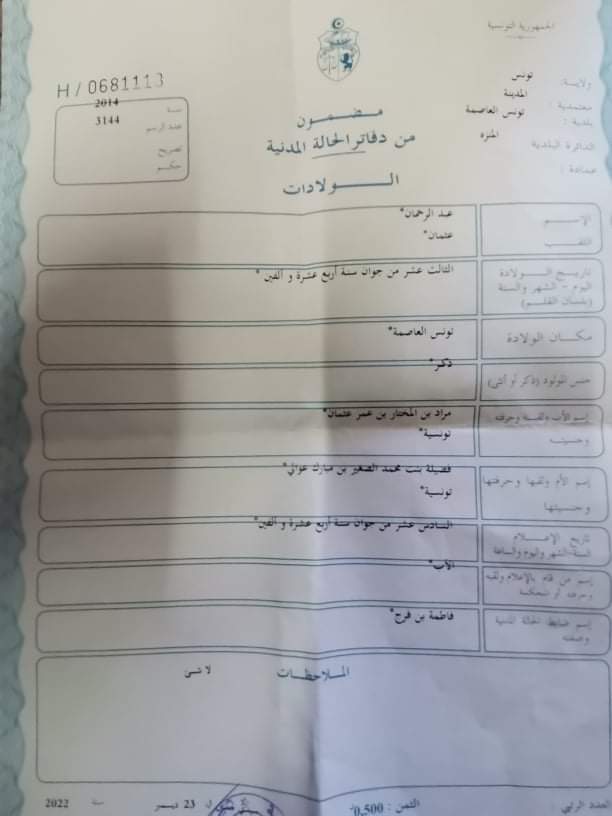 الجمهورية التونسية
ولاية : تونس
معتمدية : المدينة
بلدية : تونس العاصمة
الدائرة البلدية المنزه
عمادة :
H / 0681113
سنة 2014
عدد الرسم 3144
تصريح
حكم
مضمون
من دفاتر الحالة المدنية
الولادات
الإسم عبد الرحمان*
اللقب عثمان*
تاريخ الولادة الثالث عشر من جوان سنة أربع عشرة و ألفين *
اليوم - الشهر والسنة
(بلسان القلم)
مكان الولادة تونس العاصمة*
جنس المولود (ذكر أو أنثى) ذكر*
إسم الأب ولقبه وحرفته مراد بن المختار بن عمر عثمان*
وجنسيته تونسية*
إسم الأم ولقبها وحرفتها فضيلة بنت محمد الصغير بن مبارك عوالي*
وجنسيتها تونسية*
تاريخ الإعلام السادس عشر من جوان سنة أربع عشرة و ألفين*
السنة-الشهر واليوم والساعة
إسم من قام بالإعلام ولقبه الأب*
وحرفته أو المحكمة
إسم ضابط الحالة المدنية فاطمة بن فرج*
وصفته
الملاحظات لا شئ
العدد الرتبي : الثمن : 0,500 د ل 23 ديسمبر سنة 2022